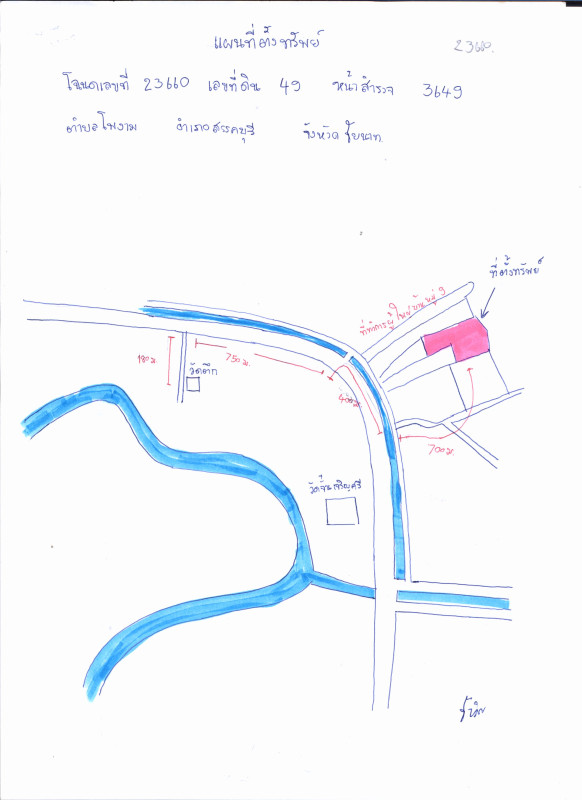 แผนที่ตั้งทรัพย์
23660.
โฉนดเลขที่ 23660 เลขที่ดิน 49 หน้าสำรวจ 3649
ตำบลโพงาม อำเภอสรรคบุรี จังหวัดชัยนาท
ที่ตั้งทรัพย์
ที่ทำการผู้ใหญ่บ้านหมู่ 9
180 ม.
750 ม.
วัดตึก
400 ม.
700 ม.
วัดจั่นเจริญศรี